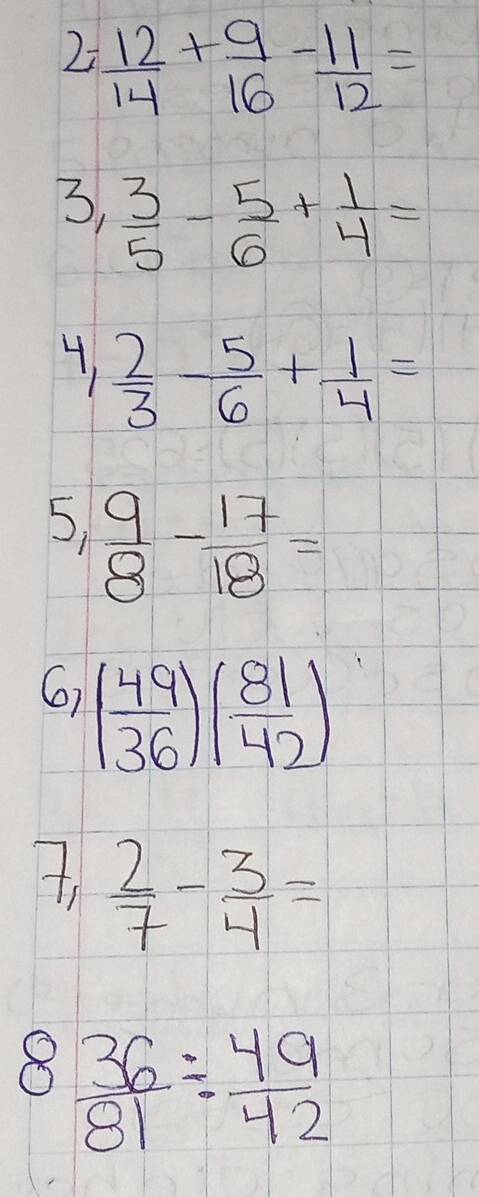 2, 12/14 + 9/16 - 11/12 =
3, 3/5 - 5/6 + 1/4 =
4, 2/3 - 5/6 + 1/4 =
5, 9/8 - 17/18 =
6, (49/36)(81/42)
7, 2/7 - 3/4 =
8 36/81 ÷ 49/42